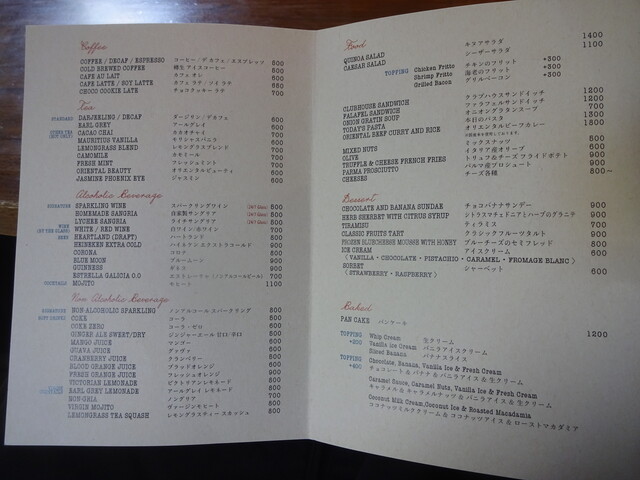 Coffee
COFFEE / DECAF / ESPRESSO コーヒー / デカフェ / エスプレッソ 600
COLD BREWED COFFEE 樽生アイスコーヒー 600
CAFE AU LAIT カフェオレ 600
CAFE LATTE / SOY LATTE カフェラテ / ソイラテ 600
CHOCO COOKIE LATE チョコクッキーラテ 700
Tea
STANDARD DARJEELING / DECAF ダージリン / デカフェ 600
EARL GREY アールグレイ 600
CACAO CHAI カカオチャイ 700
MAURITIUS VANILLA モリシャスバニラ 600
LEMONGRASS BLEND レモングラスブレンド 700
CAMOMILE カモミール 700
FRESH MINT フレッシュミント 700
ORIENTAL BEAUTY オリエンタルビューティ 600
JASMINE PHOENIX EYE ジャスミン 600
Alcoholic Beverage
SIGNATURE SPARKLING WINE スパークリングワイン 800
HOMEMADE SANGRIA 自家製サングリア 800
LYCHEE SANGRIA ライチサングリア 800
WINE (BY THE GLASS) WHITE / RED WINE 白ワイン/赤ワイン 700
BEER HEARTLAND (DRAFT) ハートランド 800
HEINEKEN EXTRA COLD ハイネケン エクストラコールド 900
CORONA コロナ 900
BLUE MOON ブルームーン 900
GUINNESS ギネス 900
ESTRELLA GALICIA 0.0 700
COCKTAILS MOJITO モヒート 1100
Non Alcoholic Beverage
SIGNATURE NON-ALCOHOLIC SPARKLING ノンアルコール スパークリング 800
SOFT DRINKS COKE コーラ 600
COKE ZERO コーラ・ゼロ 600
GINGER ALE SWEET/DRY ジンジャーエール 甘口・辛口 600
MANGO JUICE マンゴー 600
GUAVA JUICE グァヴァ 600
CRANBERRY JUICE クランベリー 600
BLOOD ORANGE JUICE ブラッドオレンジ 600
FRESH ORANGE JUICE フレッシュオレンジ 800
VICTORIAN LEMONADE ビクトリアンレモネード 800
EARL GREY LEMONADE アールグレイレモネード 800
NON-GRIA ノングリア 700
VIRGIN MOJITO ヴァージンモヒート 800
LEMONGRASS TEA SQUASH レモングラスティー スカッシュ 800
Food
QUINOA SALAD キヌアサラダ 1400
CAESAR SALAD シーザーサラダ 1100
TOPPING Chicken Fritto チキンのフリット +300
Shrimp Fritto 海老のフリット +500
Grilled Bacon グリルベーコン +300
CLUBHOUSE SANDWICH クラブハウスサンドイッチ 1200
FALAFEL SANDWICH ファラフェルサンドイッチ 1200
ONION GRATIN SOUP オニオングラタンスープ 700
TODAY'S PASTA 本日のパスタ 1300
ORIENTAL BEEF CURRY AND RICE オリエンタルビーフカレー 1800
MIXED NUTS ミックスナッツ 600
OLIVE イタリア産オリーブ 600
TRUFFLE & CHEESE FRENCH FRIES トリュフ&チーズ フライドポテト 900
PARMA PROSCIUTTO パルマ産プロシュート 900
CHEESES チーズ各種 800～
Dessert
CHOCOLATE AND BANANA SUNDAE チョコバナナサンデー 900
HERB SHERBET WITH CITRUS SYRUP シトラスマチェドニアとハーブのグラニテ 900
TIRAMISU ティラミス 700
CLASSIC FRUIT TART クラシックフルーツタルト 900
FROZEN BLUECHEESE MOUSSE WITH HONEY ブルーチーズのセミフレッド 800
ICE CREAM アイスクリーム 600
(VANILLA・CHOCOLATE・PISTACHIO・CARAMEL・FROMAGE BLANC)
SORBET シャーベット 600
(STRAWBERRY・RASPBERRY)
Baked
PAN CAKE パンケーキ 1200
TOPPING +200 Whip Cream 生クリーム
Vanilla Ice Cream バニラアイスクリーム
Sliced Banana バナナスライス
TOPPING +400 Chocolate, Banana, Vanilla Ice & Fresh Cream
チョコレート & バナナ & バニラアイス & 生クリーム
Caramel Sauce, Caramel Nuts, Vanilla Ice & Fresh Cream
キャラメル & キャラメルナッツ & バニラアイス & 生クリーム
Coconut Milk Cream,Coconut Ice & Roasted Macadamia
ココナッツミルククリーム & ココナッツアイス & ローストマカダミア